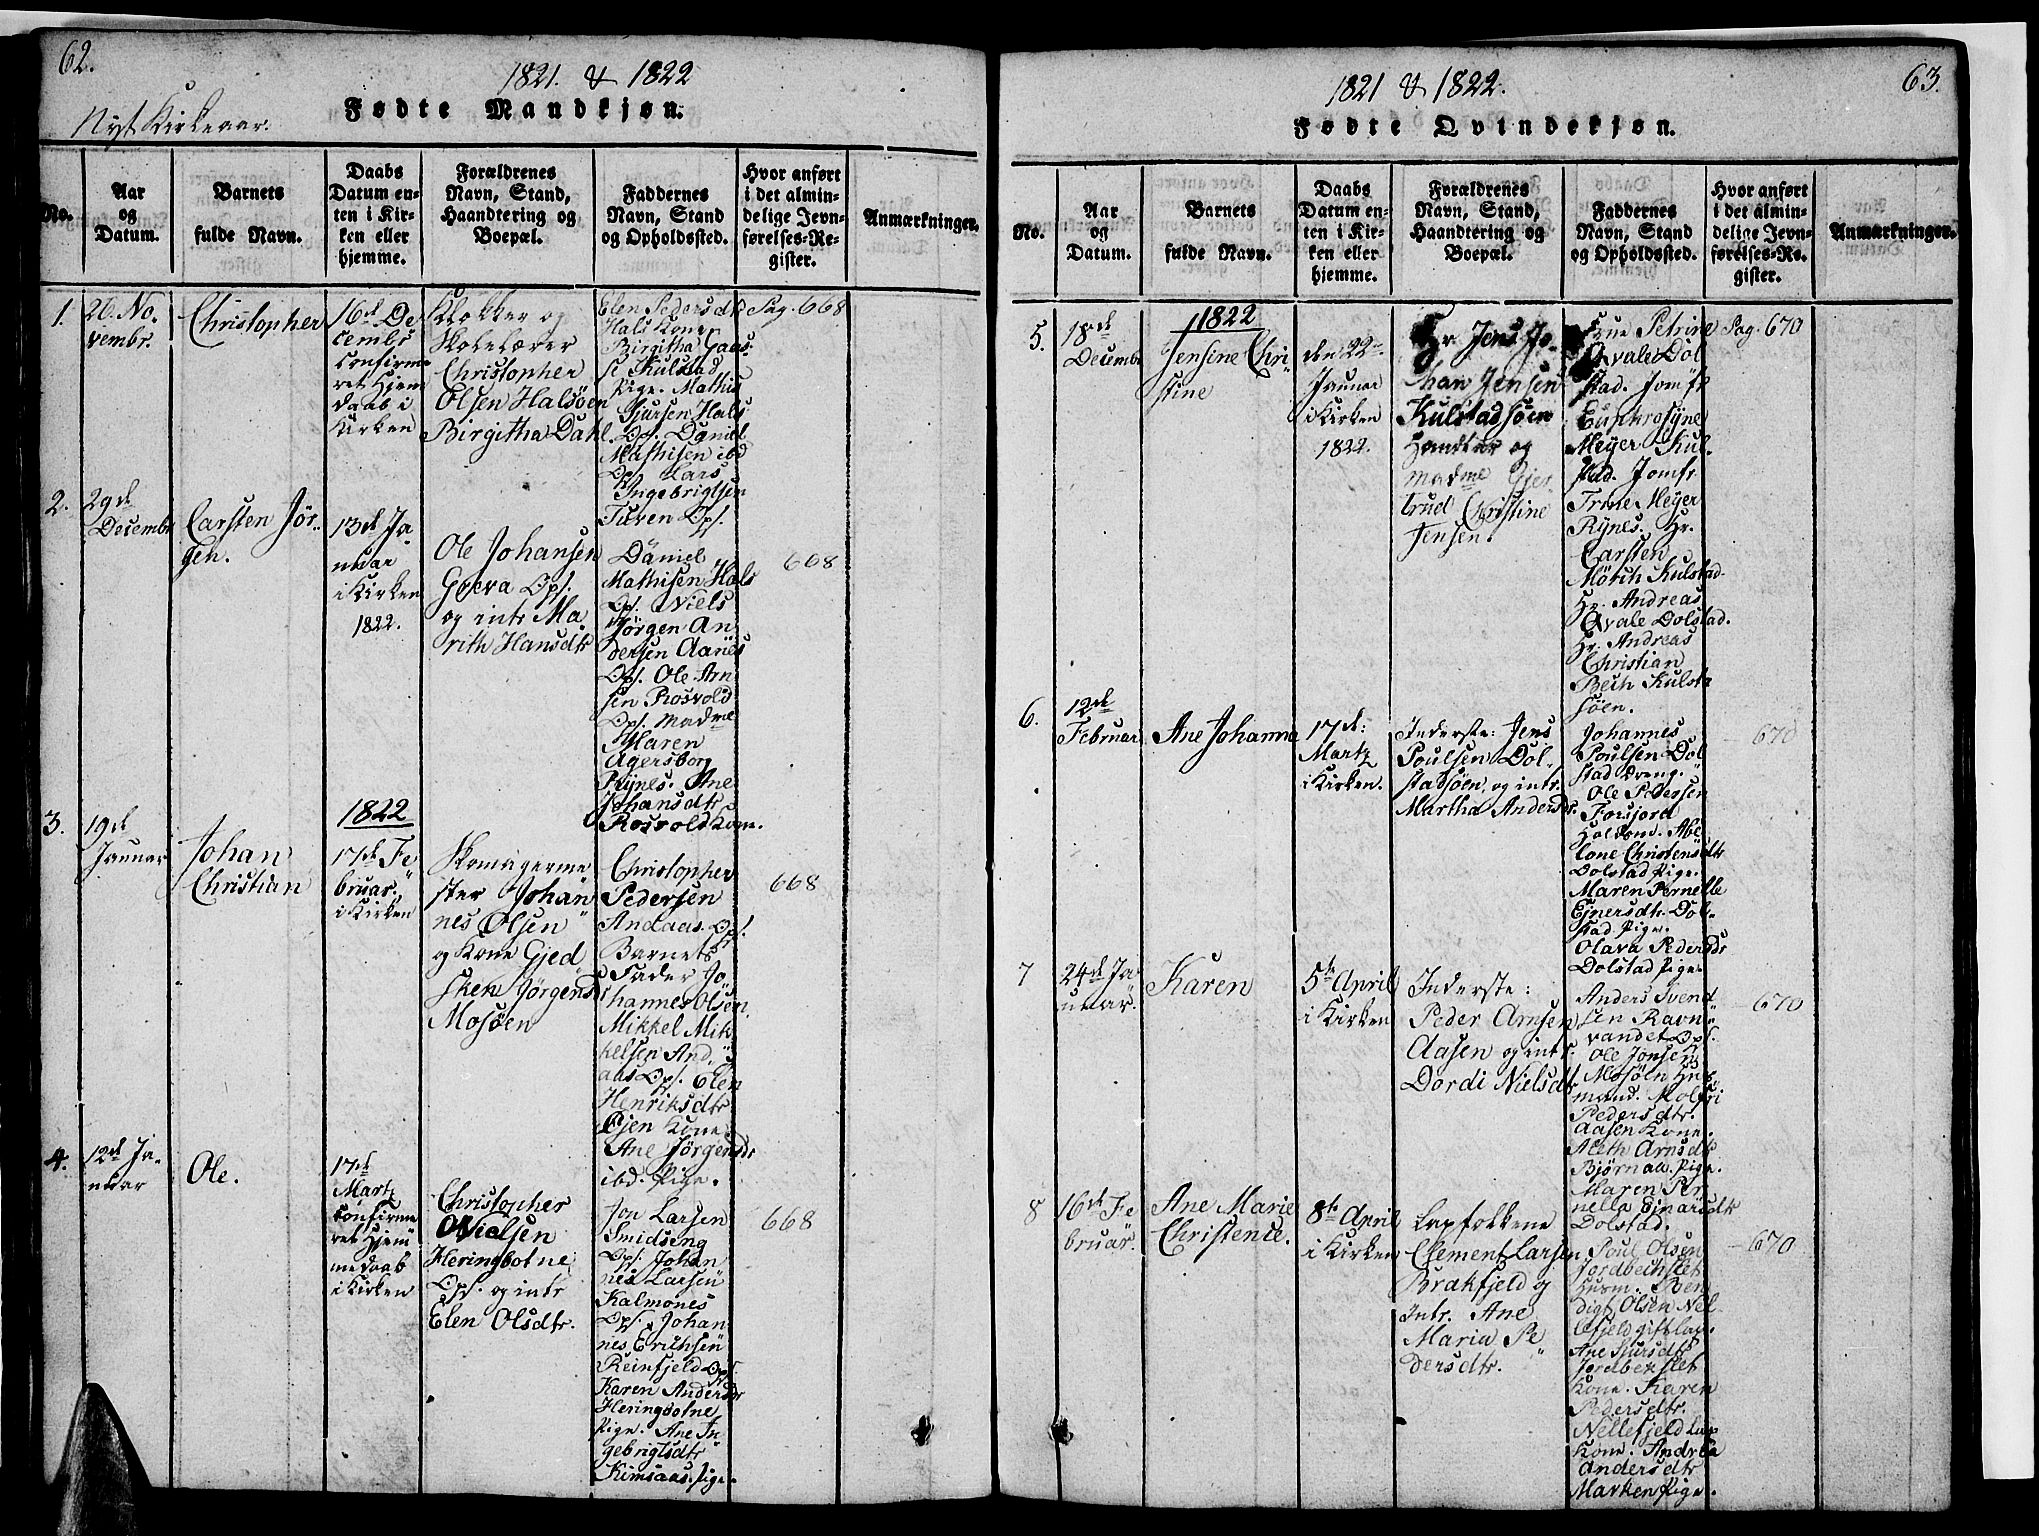 62.
1821. & 1822
Nyt Kirkeaar.
Fødte Mandkjøn.
No.
Aar
og
Datum.
Barnets
fulde Navn.
Daabs
Datum en-
ten i Kir-
ken eller
hjemme.
Forældrenes
Navn, Stand,
Haandtering og
Boepæl.
Faddernes
Navn, Stand
og Opholdssted.
Hvor anført
i det almin-
delige Jevn-
førelses-Re-
gister.
Anmærkninger.
1.
26. No-
vembr.
Christopher
16de De
cembr
confirme
ret hjem
daab i
Kirken
Klokker og
Skolelærer
Christopher
Olsen Halsøen
Birgitha Dahl.
Elen Pedersdtr
Hals Kone
Birgitha
Kulstad
Pige. Mathis
Sjursen Hals
Ops. Daniel
Mathisen ibd
Ops. Lars
Ingebrigtsen
Tuven Ops.
Pag. 668
2.
29de
Decembr
Carsten Jør-
gen.
13de Ja
nuar
i Kirken
1822.
Ole Johansen
Ops.
og intr Ma
rith Hansdtr
Daniel
Mathisen Hals
Ops. Niels
Jørgen An
dersen Aanes
Ops. Ole Arn
sen Rosvold
Ops. Madme
Maren
Agersborg
Rynes. Ane
Johansdtr
Rosvold Kone.
668
3.
19de
Januar
Johan
Christian
1822
17de Fe
bruar.
i Kirken
Skomagerme
ster Johan
nes Olsen
og Kone Gjed
sken Jørgensdr
Mosøen
Christopher
Pedersen
Andaas Ops.
Barnets
Fader Jo
hannes Olsen
Mikkel Mik
kelsen And
aas Ops. Elen
Henriksdtr
Øjen Kone.
Ane Jørgensdr
ibd. Pige.
668
4.
12de Ja-
nuar
Ole.
17de
Martz
confirme
ret hjem
medaab
i Kirken
Christopher
Nielsen
Heringbotne
Ops. og intr
Elen Olsdtr.
Jon Larsen
Smidseng
Ops. Johan
nes Larsen
Kalmones
Ops. Johan
nes Erichsen
Reinfjeld Ops
Karen Andersdr
Heringbotne
Pige. Ane In
gebrigtsdtr
Kimsaas. pige.
668
63.
1821 & 1822.
Fødte Qvindekjøn.
No.
Aar
og
Datum.
Barnets
fulde Navn.
Daabs
Datum en-
ten i Kir-
ken eller
hjemme.
Forældrenes
Navn, Stand,
Haandtering og
Boepæl.
Faddernes
Navn, Stand
og Opholdssted.
Hvor anført
i det almin-
delige Jevn-
førelses-Re-
gister.
Anmærkninger.
5.
18de
Decembr
1822
Jensine Chri
stine
den 22de
Januar
i Kirken
1822.
Hr Jens Jo-
han Jensen
Kulstadsøen
Handler og
Madme Gjer
trud Christine
Jensen.
Petrine
Qvale Dol
stad. Jomfr
Euphrosyne
Meyer Kul-
stad. Jomfr
Trine Meyer
Rynes. Hr.
Carsten
Mørch Kulstad.
Hr. Andreas
Qvale Dolstad.
Hr. Andreas
Christian
Bech Kulsta
søen.
Pag. 670
6.
12de
Februar
Ane Johanna
17de:
Martz
i Kirken.
Inderste: Jens
Poulsen Dol-
stadsøen, og intr.
Martha Andersdr.
Johannes
Poulsen Dol
stad dreng.
Ole Pedersen
Fousjord
Holdsm. Abe
lone Christensdtr
Dolstad Pige.
Maren Pernelle
Ejnersdtr. Dol-
stad Pige.
Olava Pedersdr
Dolstad Pige.
670
7
24de Ja
nuar.
Karen
5te April
i Kirken
Inderste:
Peder Arnsen
Aasen og intr.
Dordi Nielsdtr
Anders Svend
sen Ravn
vandet Ops.
Ole Jonsen
Mosøen Hus
mand. Molfri
Pedersdtr.
Aasen Kone.
Meth Arnsdtr
Bjørnaa. Pige.
Maren Per
nella Einarsdtr
Dolstad.
670
8
16de Fe
bruar.
Ane Marie
Christence.
8te April
i Kirken
Lapfolkene
Clement Larsen
Brakfjeld og
Intr. Ane
Maria Pe
dersdtr.
Poul Olsen
Jordbechslet
Husm. Ben
digt Olsen Nel-
lefjeld gift Lap.
Ane Sjursdtr
Jordbekslet
Kone. Karen
Pedersdtr.
Nellefjeld Lap
Kone. Andrea
Andersdtr
Marken Pige.
670